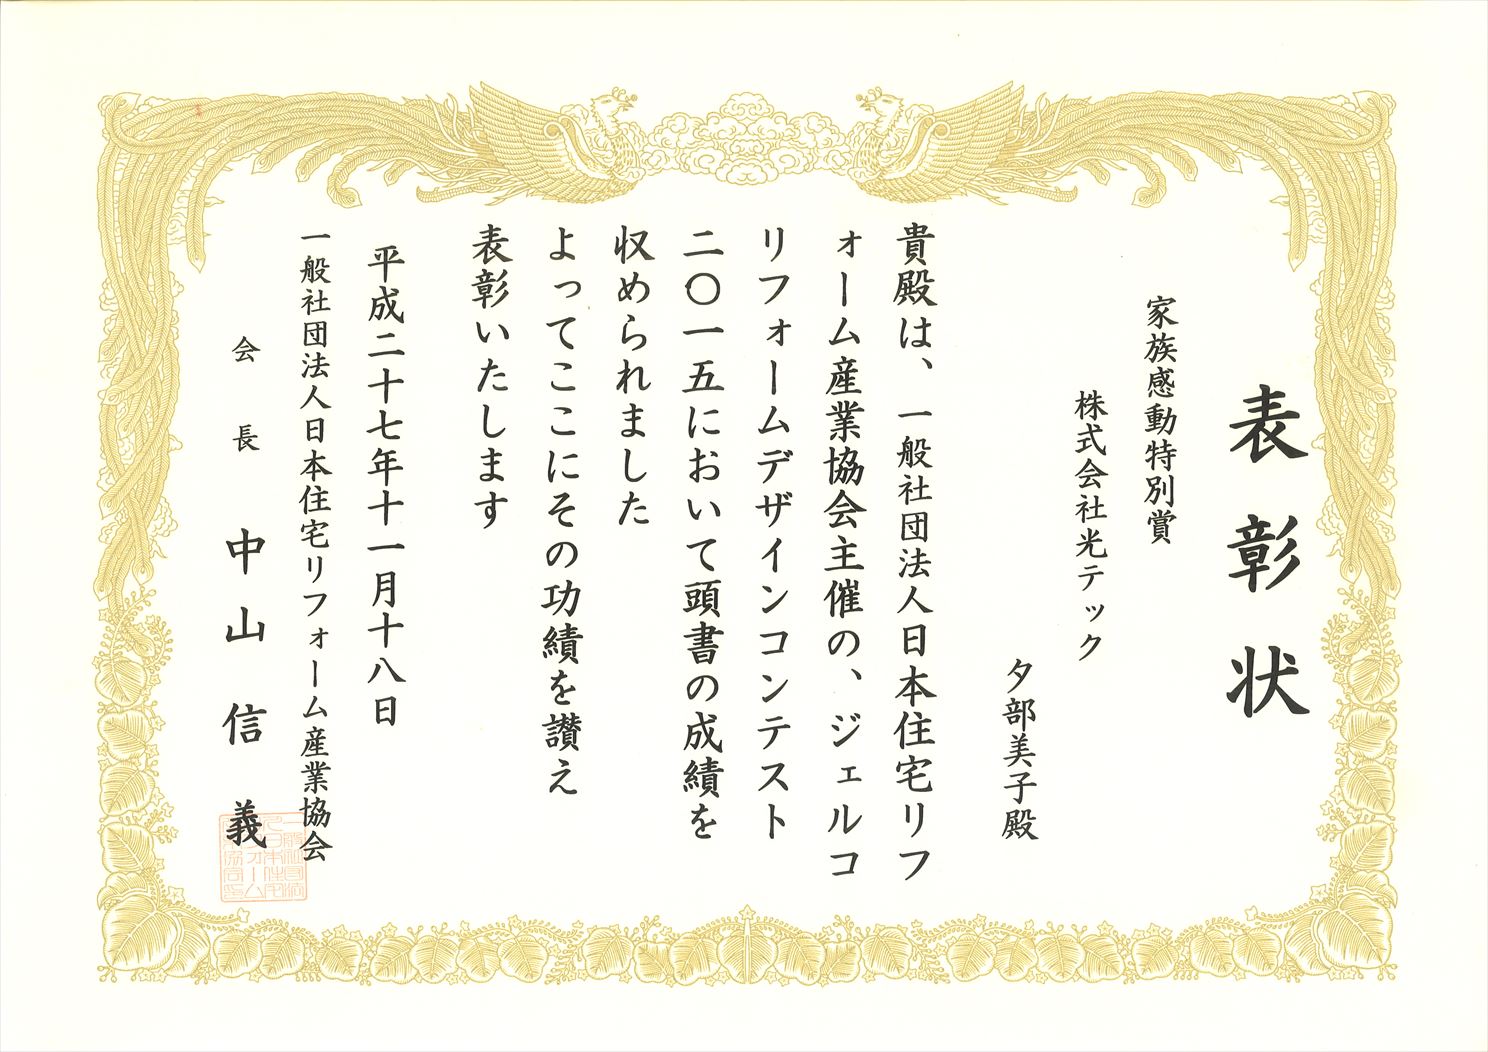 表彰状
家族感動特別賞
株式会社光テック
夕部美子殿
貴殿は、一般社団法人日本住宅リフ
ォーム産業協会主催の、ジェルコ
リフォームデザインコンテスト
二〇一五において頭書の成績を
収められました
よってここにその功績を讃え
表彰いたします
平成二十七年十一月十八日
一般社団法人日本住宅リフォーム産業協会
会長 中山信義